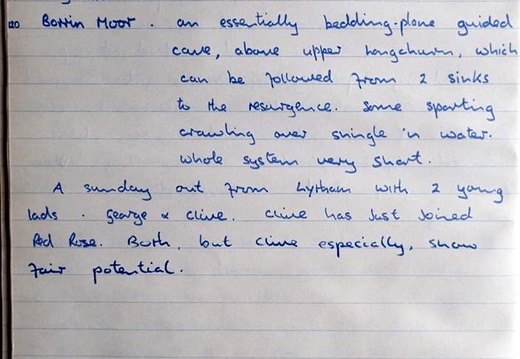 120 Borrin Moor. an essentially bedding-plane guided
cave, above upper Longchurn, which
can be followed from 2 sinks
to the resurgence. Some sporting
crawling over shingle in water.
whole system very short.
A Sunday out from Lytham with 2 young
lads. George & Clive. Clive has just joined
Red Rose. Both, but Clive especially, show
fair potential.